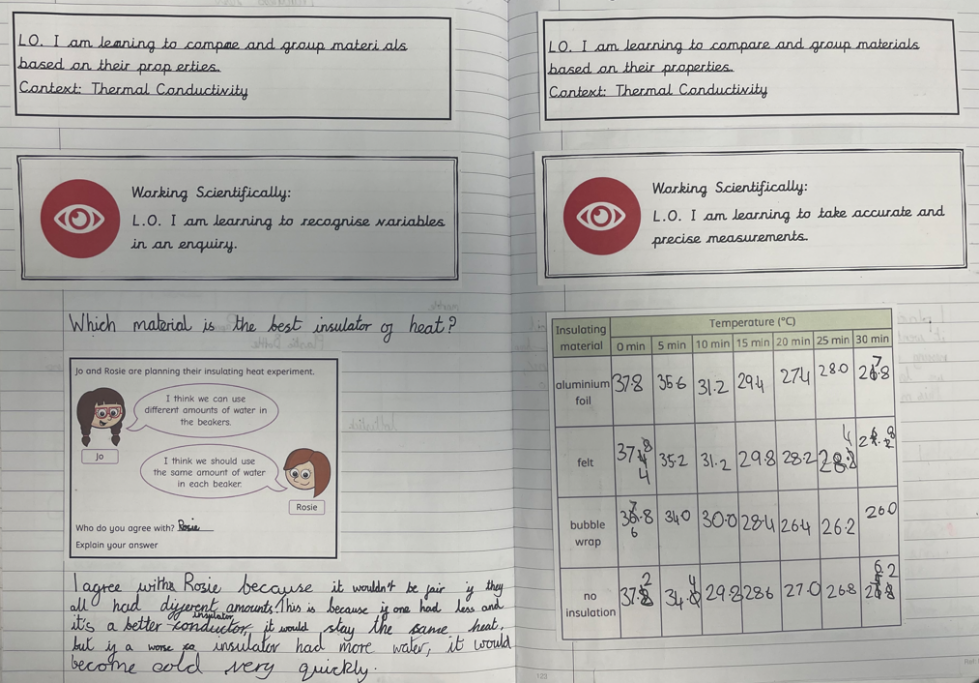 LO. I am learning to compare and group materials
based on their properties.
Context: Thermal Conductivity
Working Scientifically:
L.O. I am learning to recognise variables
in an enquiry.
Which material is the best insulator of heat?
Jo and Rosie are planning their insulating heat experiment.
I think we can use
different amounts of water in
the beakers.
Jo
I think we should use
the same amount of water
in each beaker.
Rosie
Who do you agree with? Rosie
Explain your answer
I agree with Rosie because it wouldn't be fair if they
all had different amounts. This is because if one had less and
insulator
it's a better conductor, it would stay the same heat,
but if a worse insulator had more water, it would
become cold very quickly.
LO. I am learning to compare and group materials
based on their properties.
Context: Thermal Conductivity
Working Scientifically:
L.O. I am learning to take accurate and
precise measurements.
Insulating material Temperature (°C)
0 min 5 min 10 min 15 min 20 min 25 min 30 min
aluminium foil 37.8 35.6 31.2 29.4 27.4 28.0
felt 35.2 31.2 29.8 28.2
bubble wrap 34.0 30.0 28.4 26.4 26.2 26.0
no insulation 29.8 28.6 27.0 26.8